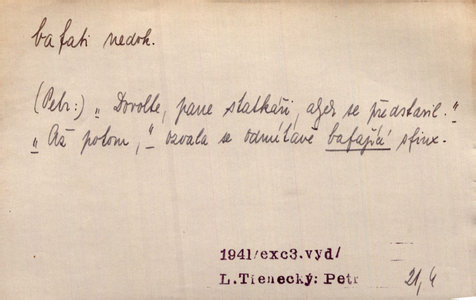 bafati nedok.
(Petr:) „Dovolte, pane statkáři, abych se představil."
„Až potom," ozvala se odmítavě bafající sfinx.
1941/exc3.vyd/
L.Třenecký: Petr
21,4